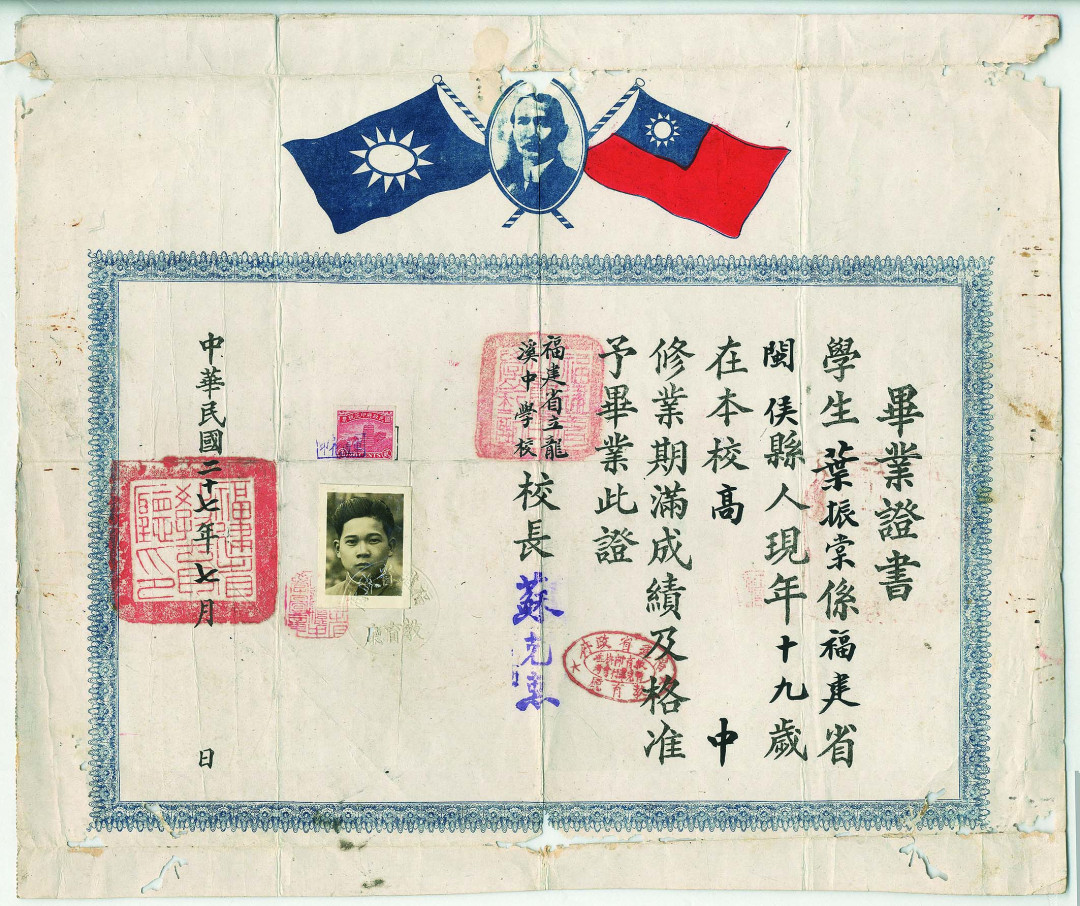 畢業證書
學生葉振棠係福建省
閩侯縣人現年十九歲
在本校高 中
修業期滿成績及格准
予畢業此證
福建省立龍
溪中學校
校長
中華民國二十七年七月 日